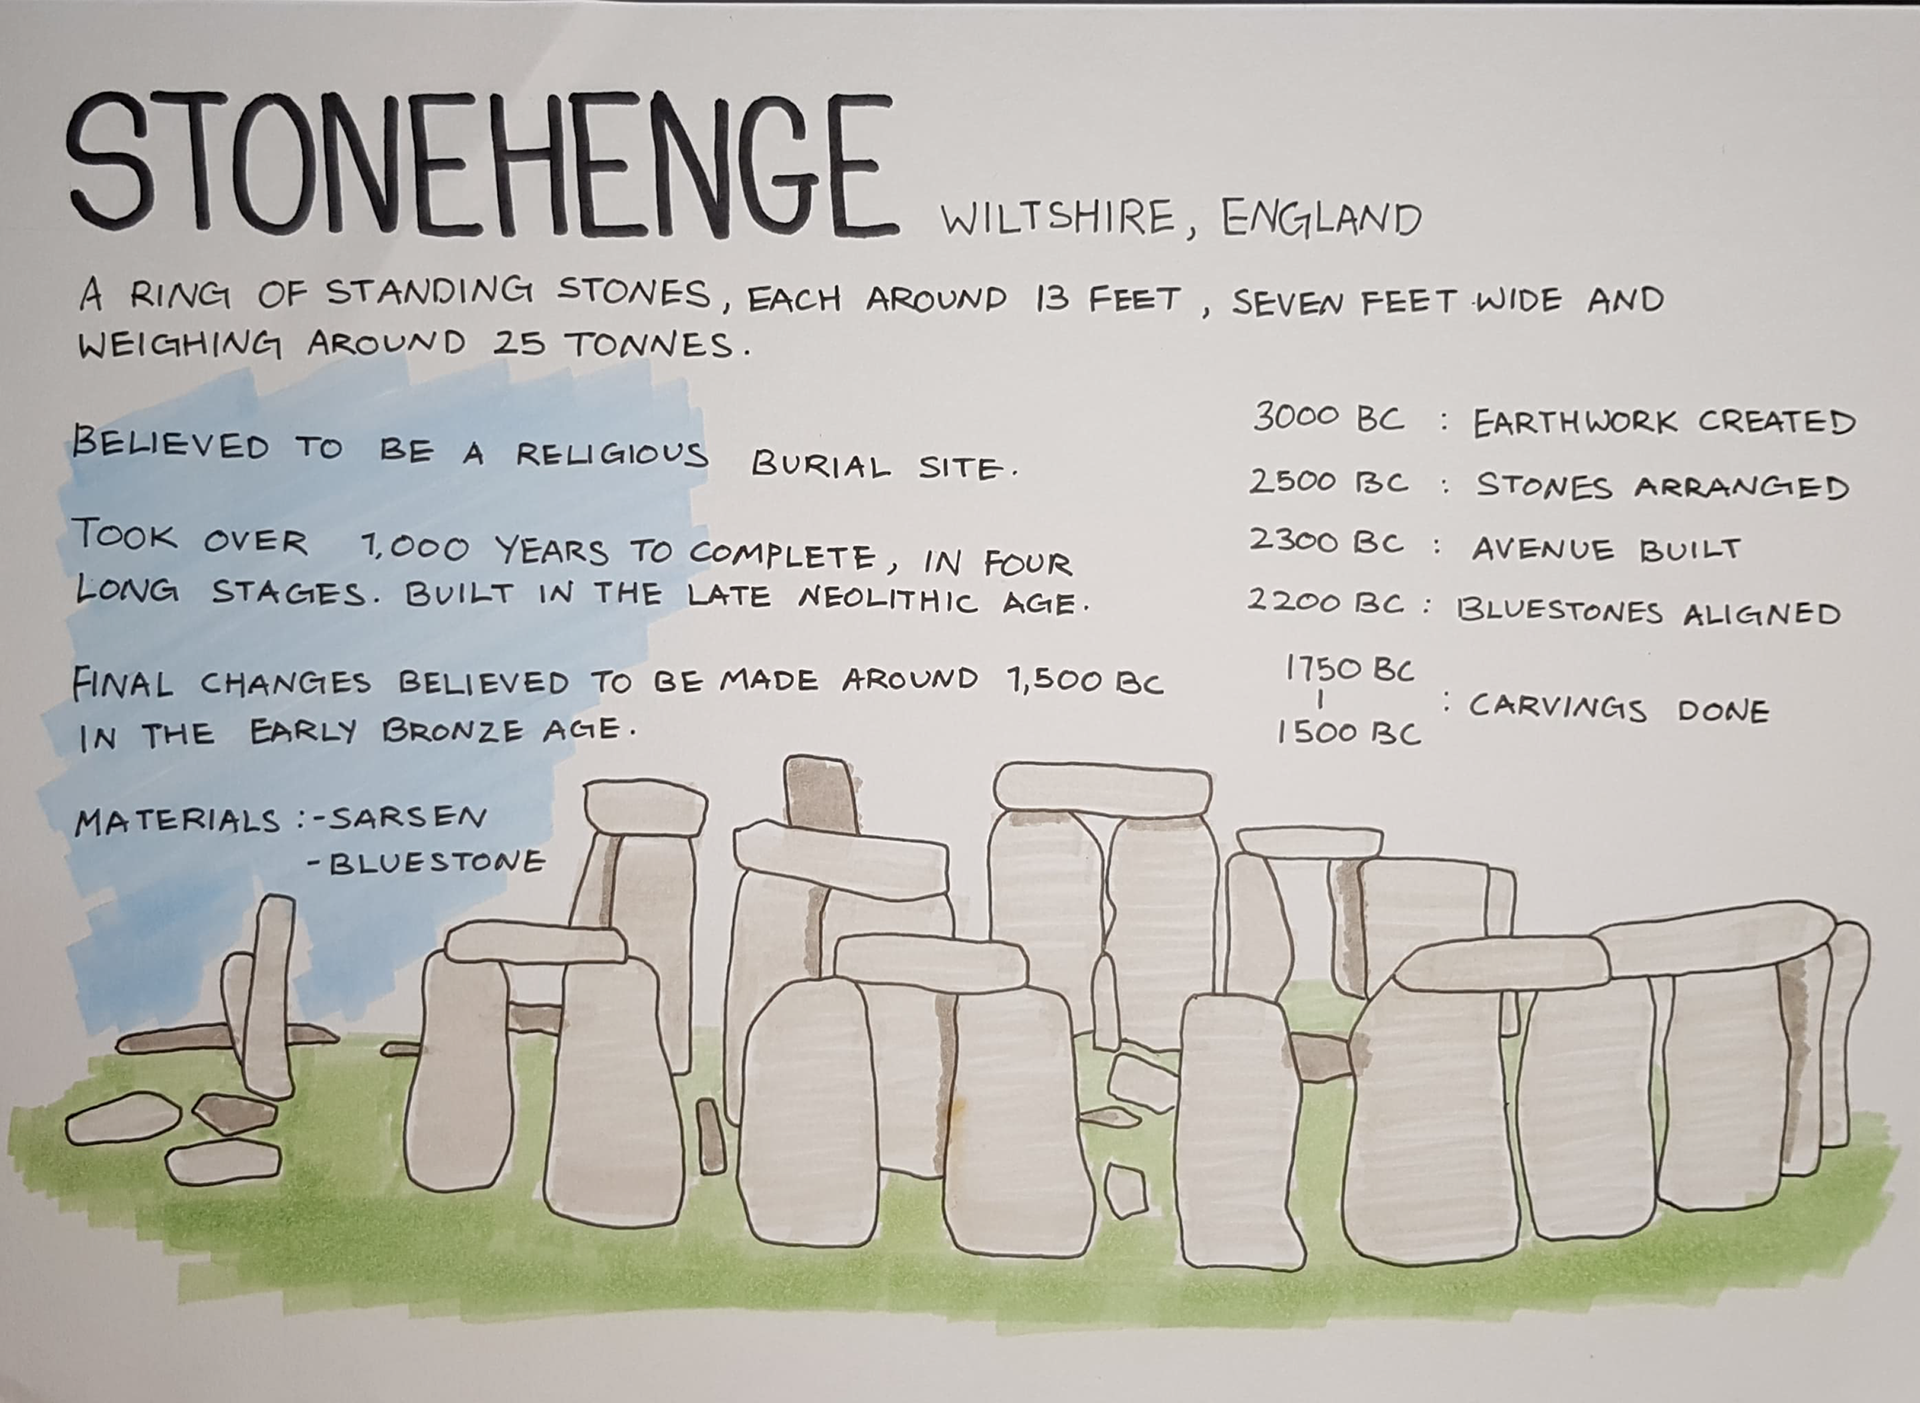 STONEHENGE WILTSHIRE, ENGLAND
A RING OF STANDING STONES, EACH AROUND 13 FEET, SEVEN FEET WIDE AND
WEIGHING AROUND 25 TONNES.
BELIEVED TO BE A RELIGIOUS BURIAL SITE.
TOOK OVER 1,000 YEARS TO COMPLETE, IN FOUR
LONG STAGES. BUILT IN THE LATE NEOLITHIC AGE.
FINAL CHANGES BELIEVED TO BE MADE AROUND 1,500 BC
IN THE EARLY BRONZE AGE.
MATERIALS :-SARSEN
-BLUESTONE
3000 BC : EARTHWORK CREATED
2500 BC : STONES ARRANGED
2300 BC : AVENUE BUILT
2200 BC : BLUESTONES ALIGNED
1750 BC
|
: CARVINGS DONE
1500 BC